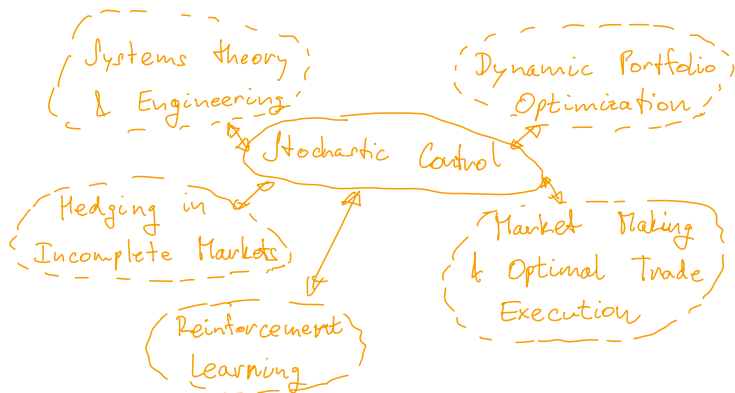 Systems theory
& Engineering
Dynamic Portfolio
Optimization
Stochastic Control
Hedging in
Incomplete Markets
Market Making
& Optimal Trade
Execution
Reinforcement
Learning